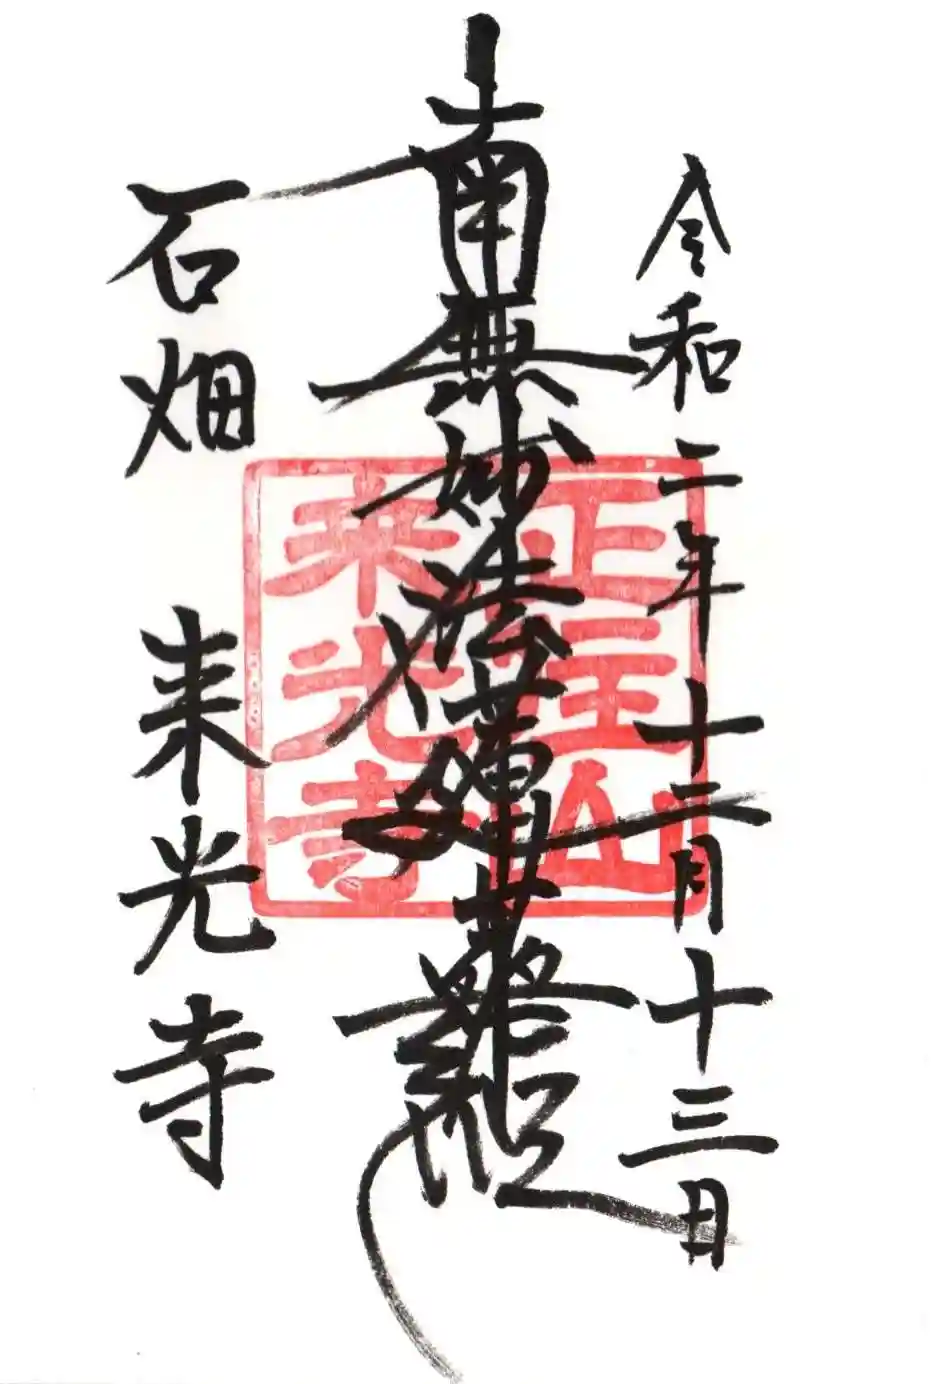 令和二年十二月十三日
南無妙法蓮華経
石畑 来光寺
正王山
来光寺